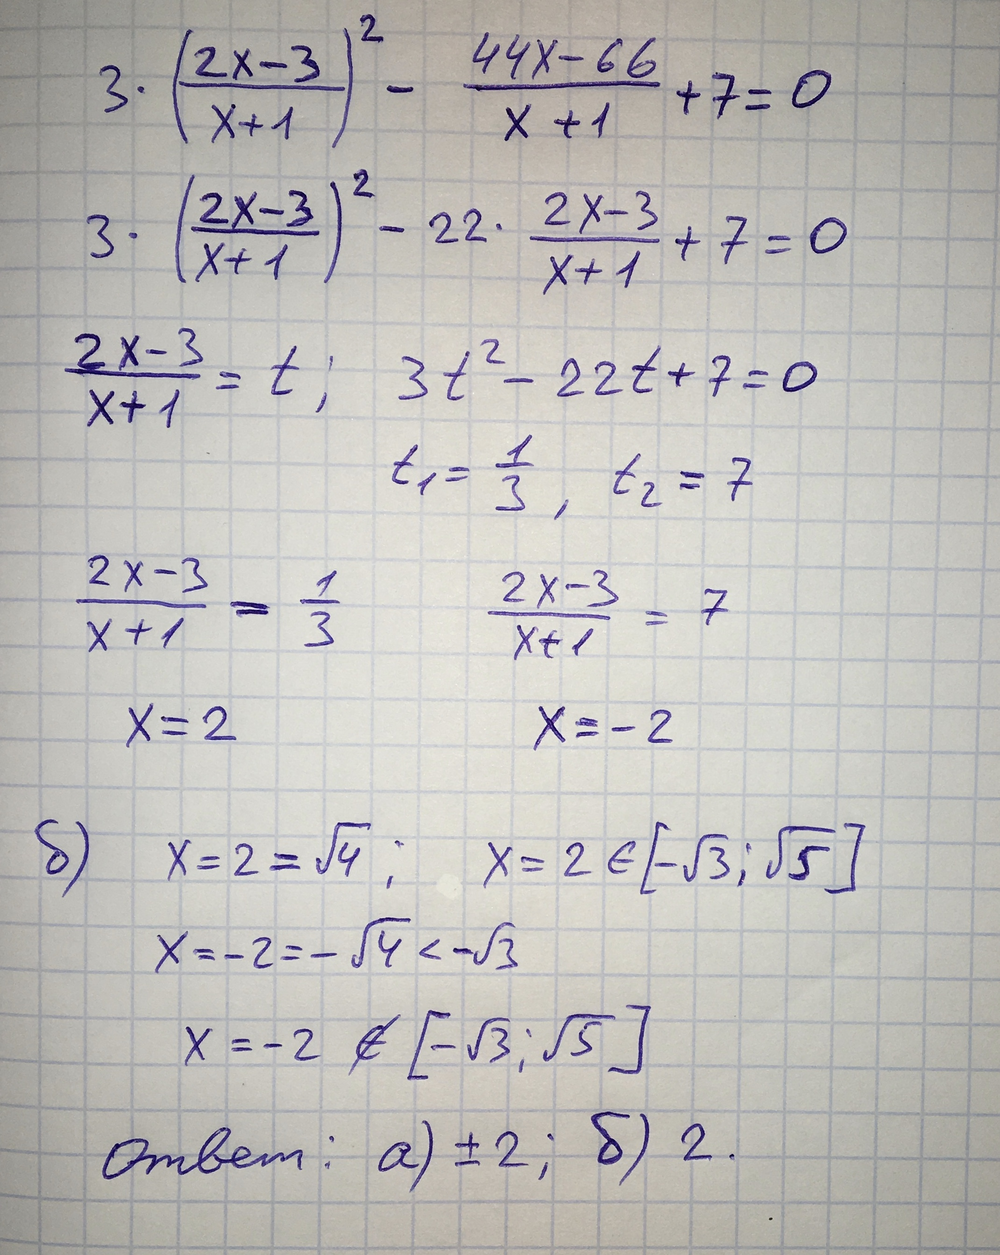 3·((2x-3)/(x+1))² - (44x-66)/(x+1) + 7 = 0
3·((2x-3)/(x+1))² - 22·(2x-3)/(x+1) + 7 = 0
(2x-3)/(x+1) = t; 3t² - 22t + 7 = 0
t₁ = 1/3, t₂ = 7
(2x-3)/(x+1) = 1/3 (2x-3)/(x+1) = 7
x = 2 x = -2
б) x = 2 = √4; x = 2 ∈ [-√3; √5]
x = -2 = -√4 < -√3
x = -2 ∉ [-√3; √5]
Ответ: а) ±2; б) 2.